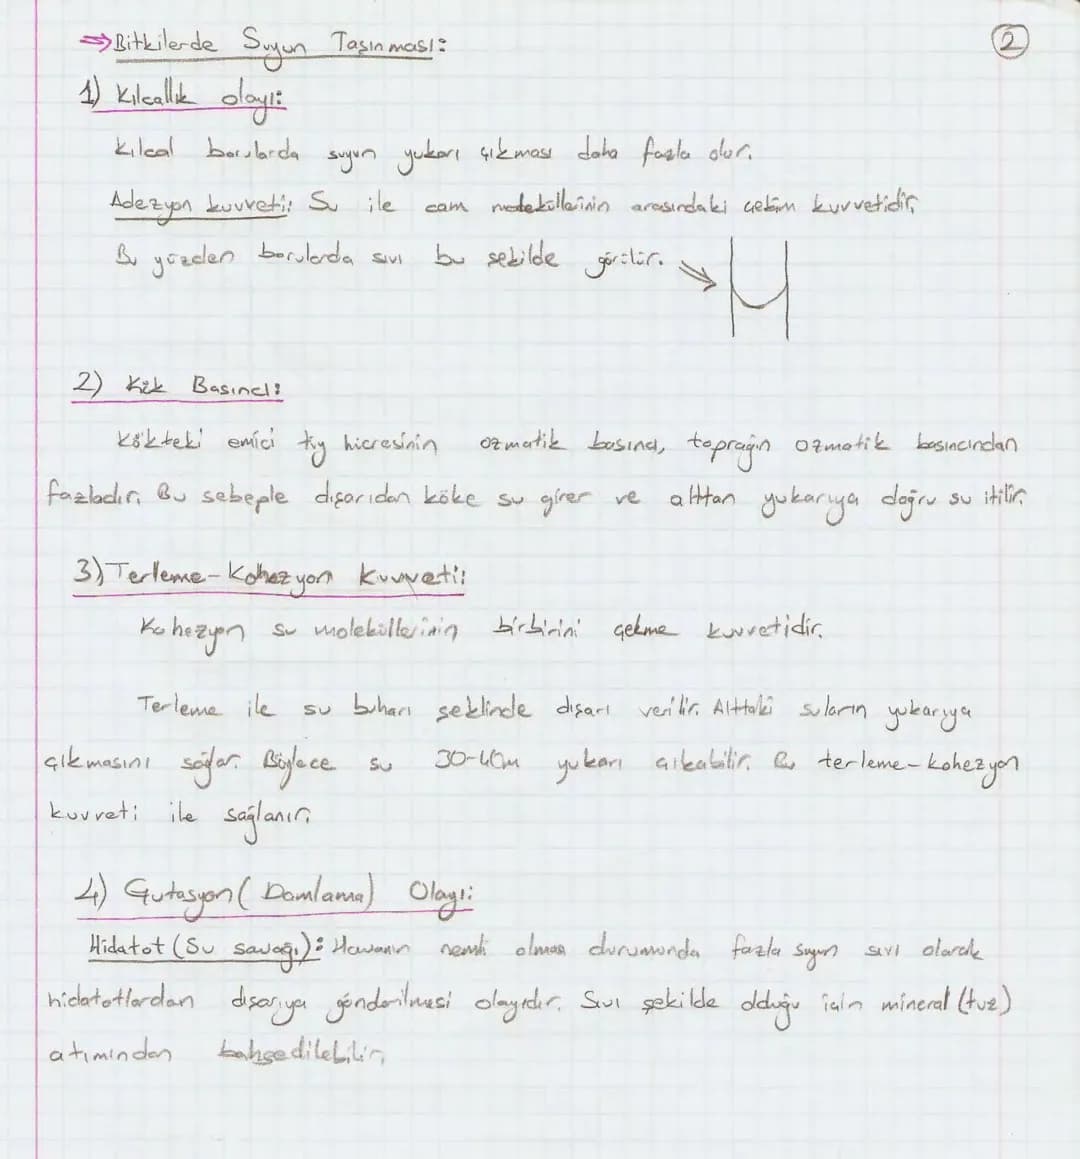 ⇒ Bitkilerde Suyun Taşınması:
2
1) Kılcallık olayı:
Kılcal borularda suyun yukarı çıkması daha fazla olur.
Adezyon kuvveti: Su ile cam moleküllerinin arasındaki çekim kuvvetidir.
Bu yüzden borularda sıvı bu şekilde görülür.
2) Kök Basıncı:
Kökteki emici tüy hücresinin ozmatik basıncı, toprağın ozmatik basıncından
fazladır. Bu sebeple dışarıdan köke su girer ve alttan yukarıya doğru su itilir.
3) Terleme-Kohezyon Kuvveti:
Kohezyon su moleküllerinin birbirini çekme kuvvetidir.
Terleme ile su buharı şeklinde dışarı verilir. Alttaki suların yukarıya
çıkmasını sağlar. Böylece su 30-40m yukarı çıkabilir. Bu terleme-kohezyon
kuvveti ile sağlanır.
4) Gutasyon (Damlama) Olayı:
Hidatot (Su savağı): Havanın nemli olması durumunda fazla suyun sıvı olarak
hidatotlardan dışarıya gönderilmesi olayıdır. Sıvı şekilde olduğu için mineral (tuz)
atımından bahsedilebilir.